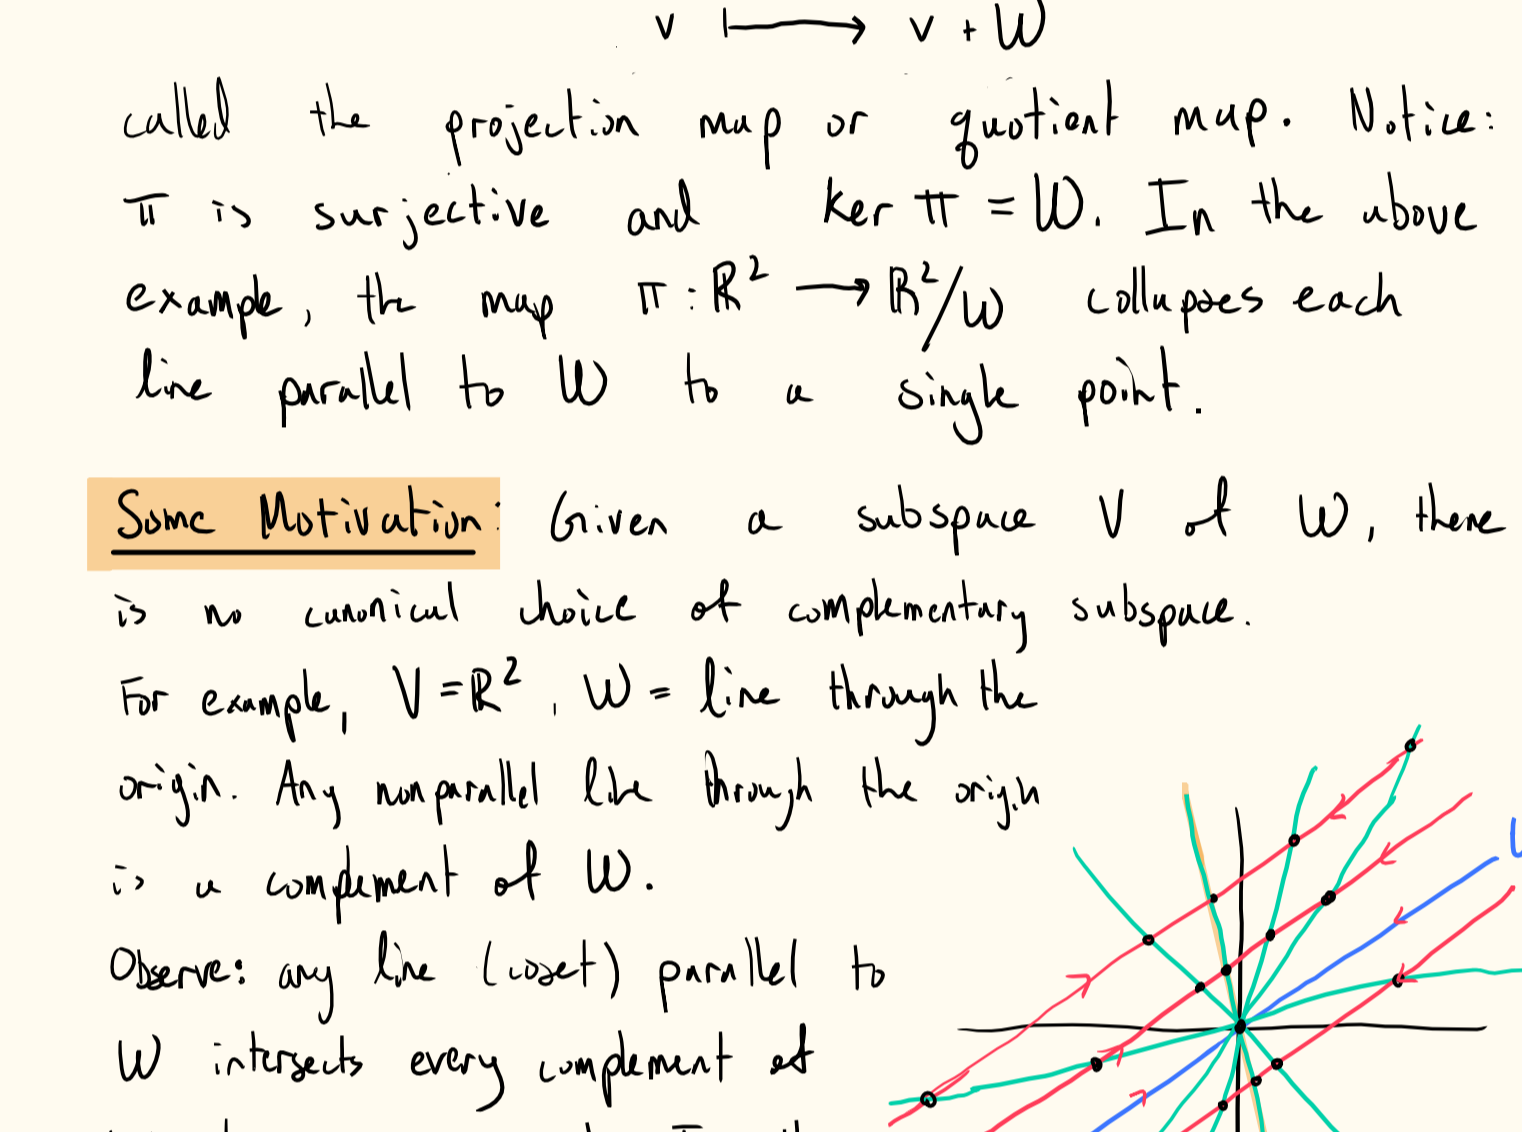 v ⟼ v + W
called the projection map or quotient map. Notice:
π is surjective and ker π = W. In the above
example, the map π : ℝ² ⟶ ℝ²/W collapses each
line parallel to W to a single point.
Some Motivation: Given a subspace V of W, there
is no canonical choice of complementary subspace.
For example, V = ℝ², W = line through the
origin. Any nonparallel line through the origin
is a complement of W.
Observe: any line (coset) parallel to
W intersects every complement at